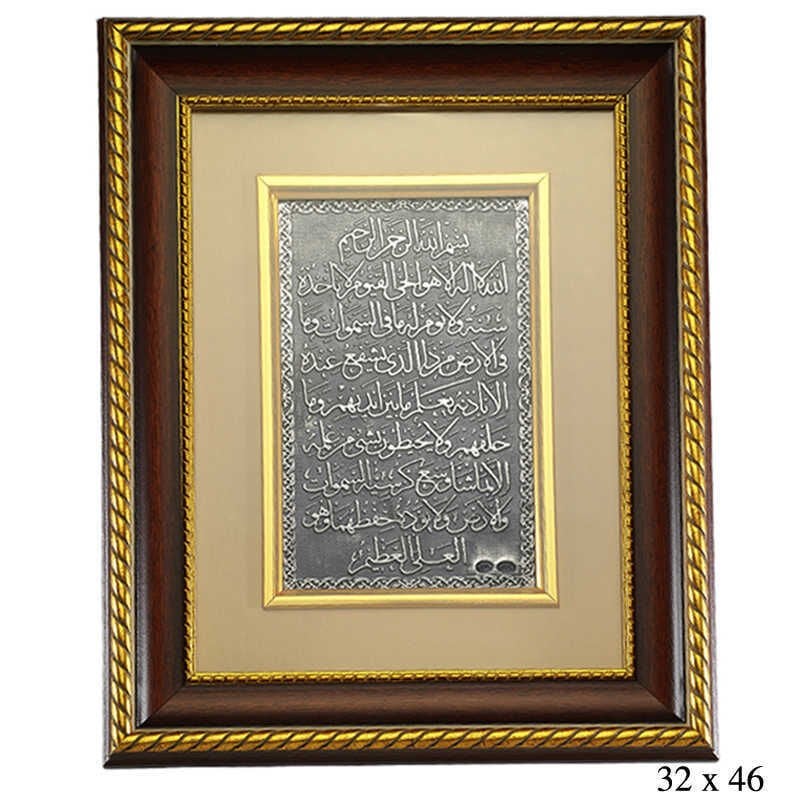 بسم الله الرحمن الرحيم
الله لا اله الا هو الحي القيوم لا تاخذه
سنة ولا نوم له ما في السموات وما
في الارض من ذا الذي يشفع عنده
الا باذنه يعلم ما بين ايديهم وما
خلفهم ولا يحيطون بشئ من علمه
الا بما شا وسع كرسيه السموات
والارض ولا يوده حفظهما وهو
العلي العظيم
32 x 46